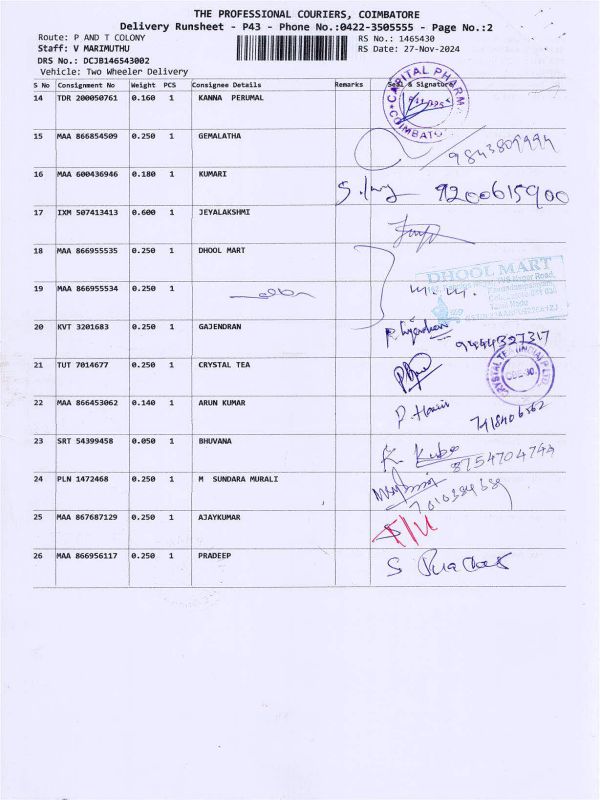 THE PROFESSIONAL COURIERS, COIMBATORE
Delivery Runsheet - P43 - Phone No.:0422-3505555 - Page No.:2
Route: P AND T COLONY RS No.: 1465430
Staff: V MARIMUTHU RS Date: 27-Nov-2024
DRS No.: DCJB146543002
Vehicle: Two Wheeler Delivery
S No Consignment No Weight PCS Consignee Details Remarks Seal & Signature
14 TDR 200050761 0.160 1 KANNA PERUMAL
CAPITAL PHARM
COIMBATO
15 MAA 866854509 0.250 1 GEMALATHA
16 MAA 600436946 0.180 1 KUMARI 9200615900
17 IXM 507413413 0.600 1 JEYALAKSHMI
18 MAA 866955535 0.250 1 DHOOL MART
DHOOL MART
19 MAA 866955534 0.250 1
20 KVT 3201683 0.250 1 GAJENDRAN 9444327317
21 TUT 7014677 0.250 1 CRYSTAL TEA
22 MAA 866453062 0.140 1 ARUN KUMAR
23 SRT 54399458 0.050 1 BHUVANA 8754704744
24 PLN 1472468 0.250 1 M SUNDARA MURALI
25 MAA 867687129 0.250 1 AJAYKUMAR
26 MAA 866956117 0.250 1 PRADEEP